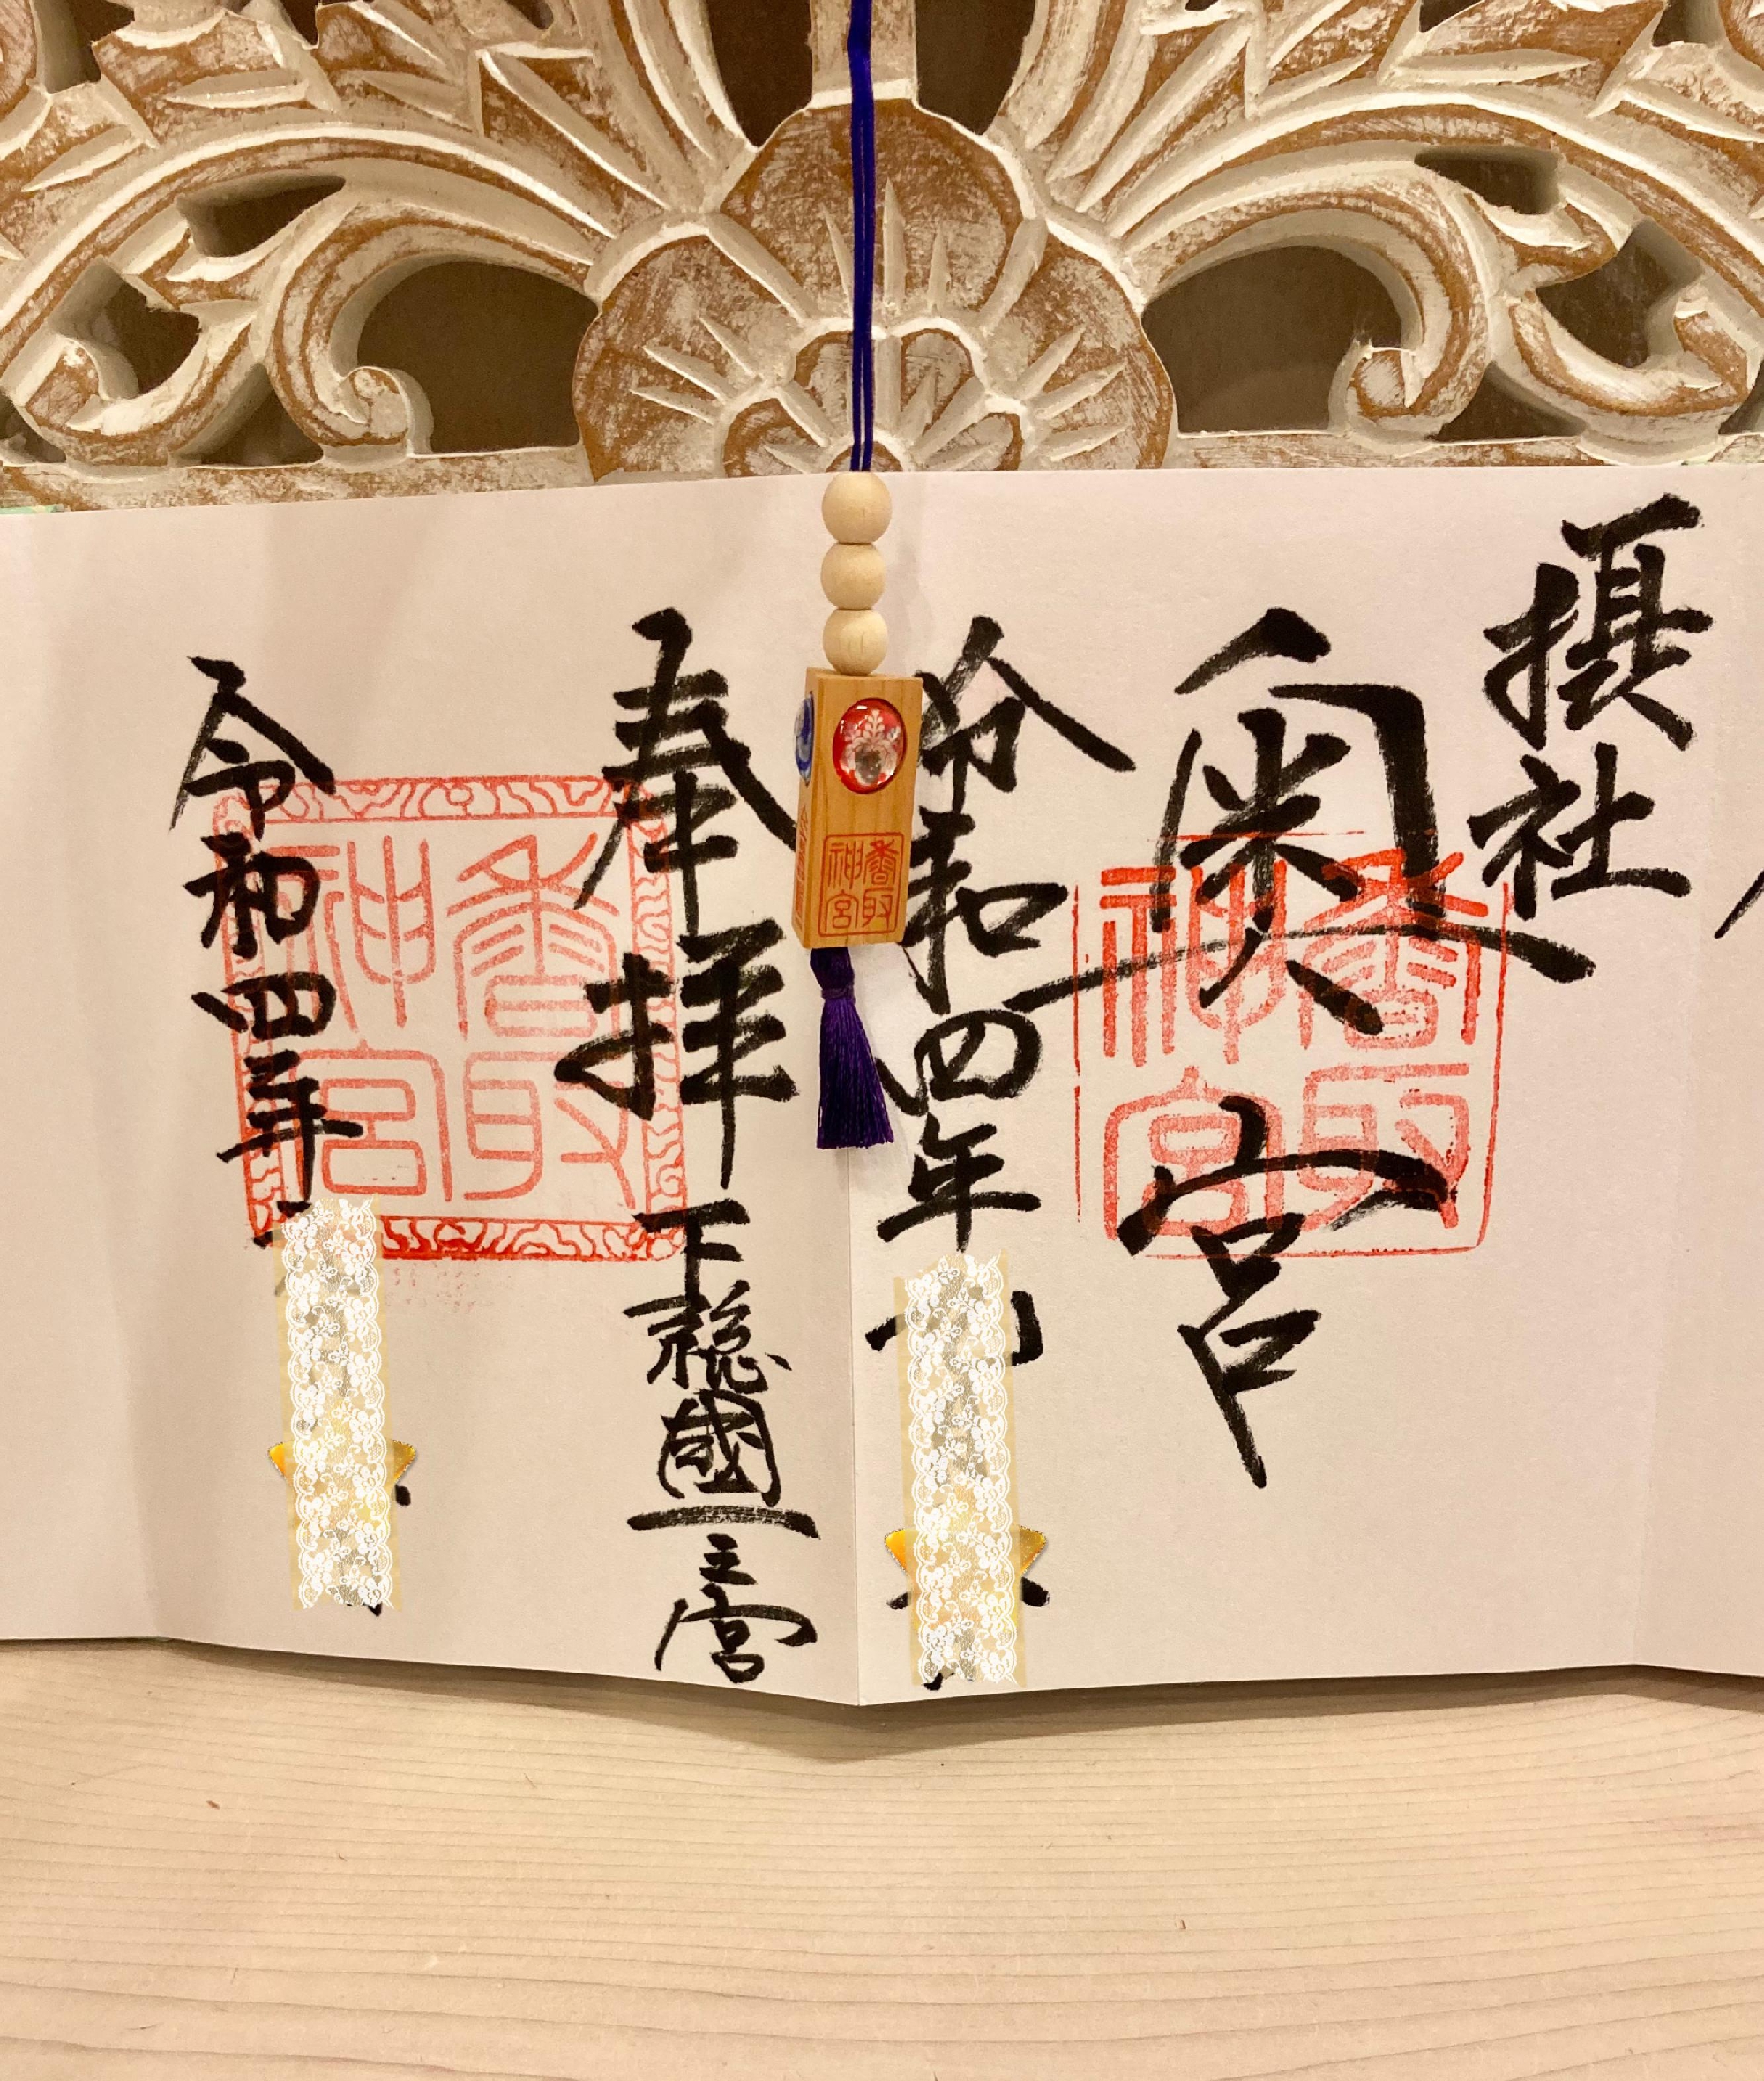 摂社
奥宮
香取
神宮
令和四年
香取
神宮
奉拝 下総國一之宮
香取
神宮
令和四年